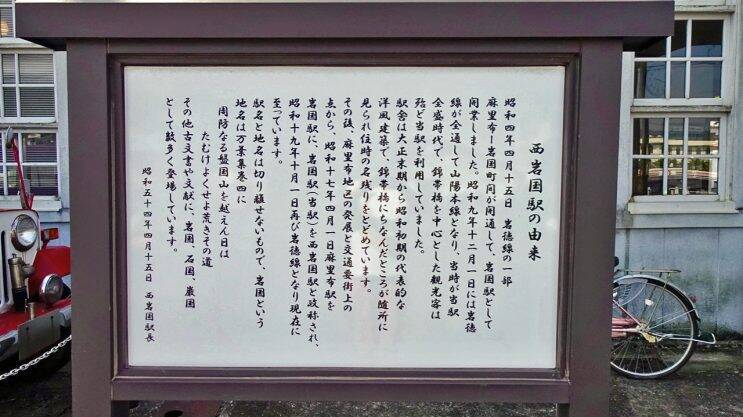 西岩国駅の由来
昭和四年四月十五日 岩徳線の一部
麻里布ー岩国町間が開通して、岩国駅として
開業しました。昭和九年十二月一日には岩徳
線が全通して山陽本線となり、当時が当駅
全盛時代で、錦帯橋を中心とした観光客は
殆ど当駅を利用していました。
駅舎は大正末期から昭和初期の代表的な
洋風建築で、錦帯橋にちなんだところが随所に
見られ往時の名残りをとどめています。
その後、麻里布地区の発展と交通要衝上の
点から、昭和十七年四月一日麻里布駅を
岩国駅に、岩国駅(当駅)を西岩国駅と改称され、
昭和十九年十月一日再び岩徳線となり現在に
至っています。
駅名と地名は切り離せないもので、岩国という
地名は万葉集巻四に
周防なる盤国山を越えん日は
たむけよくせよ荒きその道
その他古文書や文献に、岩国、石国、巌国
として数多く登場しています。
昭和五十四年四月十五日 西岩国駅長